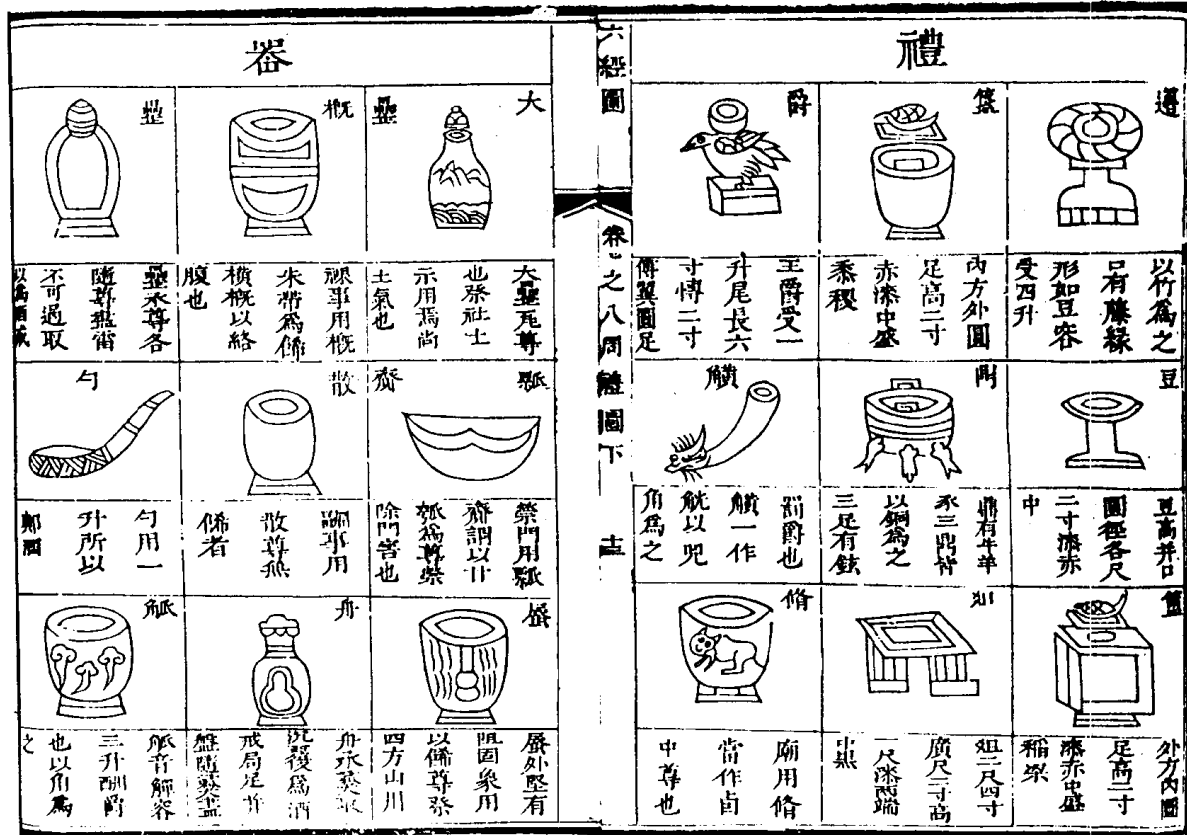 禮
籩
以竹為之
口有藤緣
形如豆容
受四升
簋
內方外圓
足高二寸
赤漆中盛
黍稷
爵
玉爵受一
升尾長六
寸博二寸
傅翼圓足
豆
豆高并口
圓徑各尺
二寸漆赤
中
鼎
鼎有牛羊
豕三鼎皆
以銅為之
三足有鉉
觵
罰爵也
觵一作
觥以兕
角為之
簠
外方內圓
足高二寸
漆赤中盛
稻粱
俎
俎二尺四寸
廣尺二寸高
一尺漆兩端
中黑
脩
廟用脩
當作卣
中尊也
六經圖
卷之八周禮圖下
器
大罍
大罍瓦尊
也祭社土
示用焉尚
土氣也
概
祼事用概
朱帶為飾
橫概以絡
腹也
罍
罍承尊各
隨尊罍雷
不可過取
以為酒戒
瓢齎
禜門用瓢
齎謂以甘
瓠為尊禜
除門害也
散
散尊無
飾者
勺
勺用一
升所以
蜃
蜃外堅有
阻固象用
以飾尊祭
四方山川
舟
觚
三升酬爵
也以角為
之